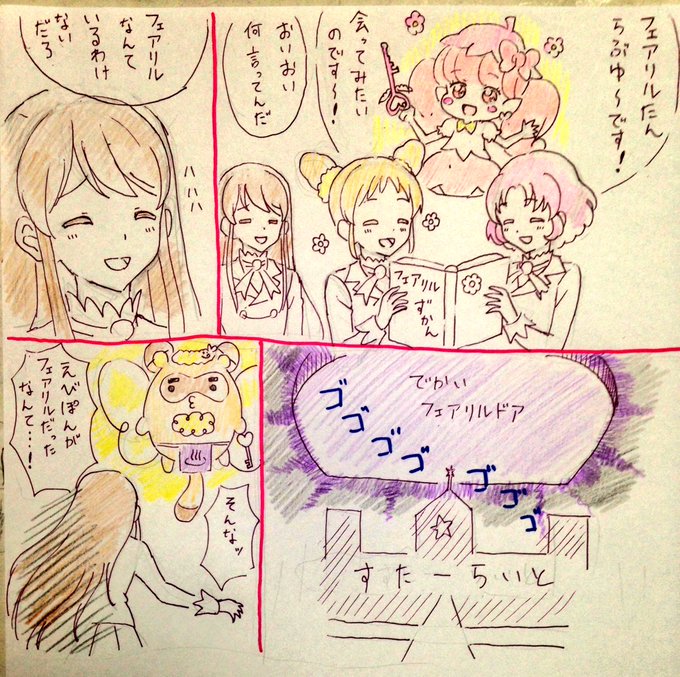 フェアリルたん
らぶゆ〜です!
会ってみたい
のです〜!
おいおい
何言ってんだ
フェアリル
ずかん
フェアリル
なんて
いるわけ
ない
だろ
ハハハ
でかい
フェアリルドア
ゴゴゴゴ
ゴゴゴ
すたーらいと
そんなッ
えびぽんが
フェアリルだった
なんて…!